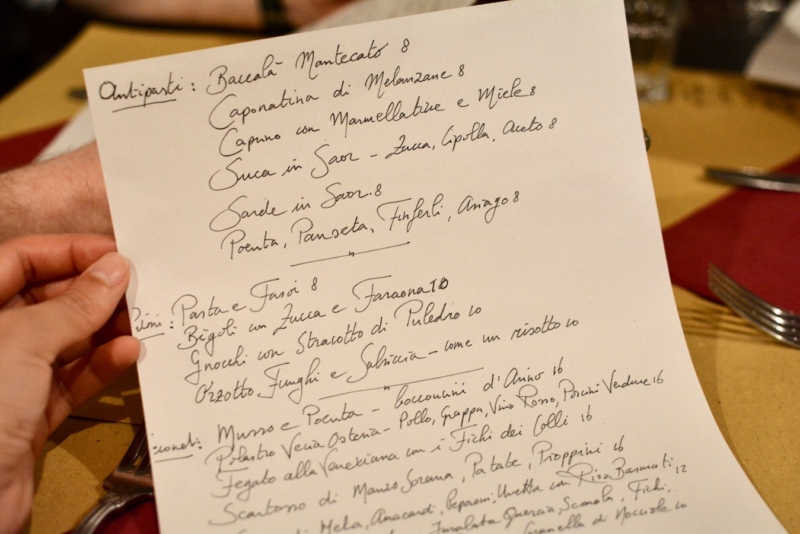 Antipasti: Baccalà Mantecato 8
Caponatina di Melanzane 8
Caprino con Marmellatine e Miele 8
Suca in Saor - Zucca, Cipolla, Aceto 8
Sarde in Saor. 8
Poenta, Panseta, Finferli, Asiago 8
Pasta e Fasoi 8
Bigoli con Zucca e Faraona 10
Gnocchi con Stracotto di Puledro 10
Orzotto Funghi e Salsiccia - come un risotto 10
Musso e Poenta - bocconcini d'Asino 16
Polastro Vecia Osteria - Pollo, Grappa, Vino Rosso, Porcini Verdure 16
Fegato alla Veneziana con i Fichi dei Colli 16
di Manzo Sorana, Patate, Pioppini 16
di Mela, Anacardi, Peperoni, Uvetta con Riso Basmati 12
Quercia, Fichi,
Granella di Nocciole 10